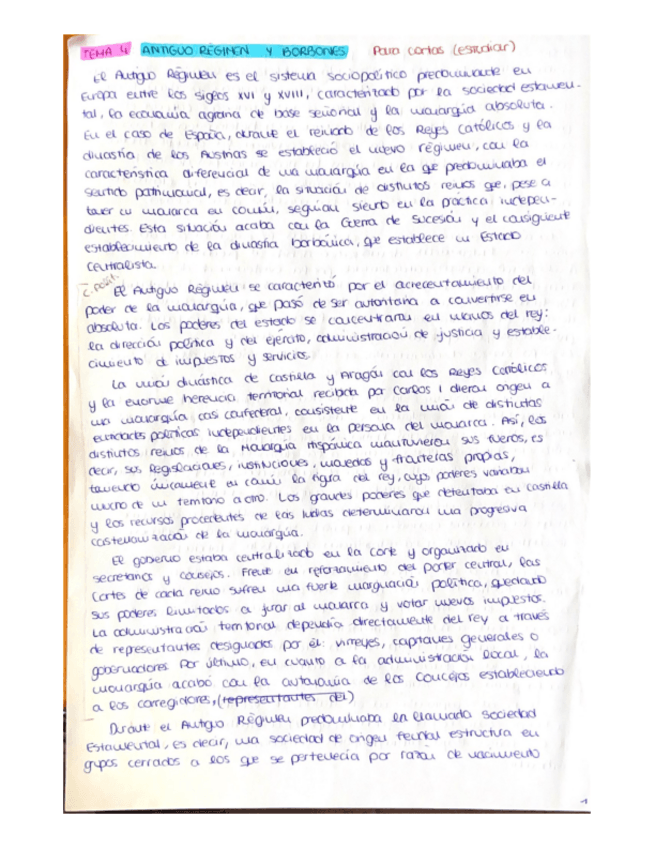 TEMA 4 ANTIGUO RÉGIMEN Y BORBONES Para cortas (estudiar)
El Antiguo Régimen es el sistema sociopolítico predominante en
Europa entre los siglos XVI y XVIII, caracterizado por la sociedad estamen-
tal, la economía agraria de base señorial y la monarquía absoluta.
En el caso de España, durante el reinado de los Reyes Católicos y la
dinastía de los Austrias se estableció el nuevo régimen, con la
característica diferencial de una monarquía en la que predominaba el
sentido patrimonial, es decir, la situación de distintos reinos que, pese a
tener un monarca en común, seguían siendo en la práctica indepen-
dientes. Esta situación acaba con la Guerra de Sucesión y el consiguiente
establecimiento de la dinastía borbónica, que establece un Estado
centralista.
El Antiguo Régimen se caracterizó por el acrecentamiento del
poder de la monarquía, que pasó de ser autoritaria a convertirse en
absoluta. Los poderes del estado se concentraron en manos del rey:
la dirección política y del ejército, administración de justicia y estable-
cimiento de impuestos y servicios.
La unión dinástica de Castilla y Aragón con los Reyes Católicos
y la enorme herencia territorial recibida por Carlos I dieron origen a
una monarquía casi confederal, consistente en la unión de distintas
entidades políticas independientes en la persona del monarca. Así, los
distintos reinos de la Monarquía Hispánica mantuvieron sus fueros, es
decir, sus legislaciones, instituciones, monedas y fronteras propias,
teniendo únicamente en común la figura del rey, cuyos poderes variaban
mucho de un territorio a otro. Los grandes poderes que detentaba en Castilla
y los recursos procedentes de las Indias determinaron una progresiva
castellanización de la monarquía.
El gobierno estaba centralizado en la corte y organizado en
secretarios y consejos. Frente au reforzamiento del poder central, las
Cortes de cada reino sufren una fuerte marginación política, quedando
sus poderes limitados a jurar al monarca y votar nuevos impuestos.
La administración territorial dependía directamente del rey a través
de representantes designados por él: virreyes, capitanes generales o
gobernadores. Por último, en cuanto a la administración local, la
monarquía acabó con la autonomía de los concejos estableciendo
a los corregidores, (representantes del)
Durante el Antiguo Régimen predominaba la llamada sociedad
Estamental, es decir, una sociedad de origen feudal estructura en
grupos cerrados a los que se pertenecía por razón de nacimiento
1